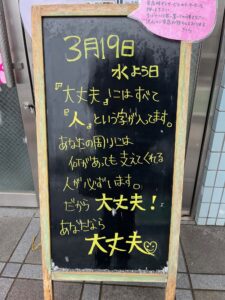 3月19日
水よう日
『大丈夫』にはすべて
『人』という字が入ってます。
あなたの周りには
何があっても支えてくれる
人が必ずいます。
だから大丈夫!
あなたなら
大丈夫